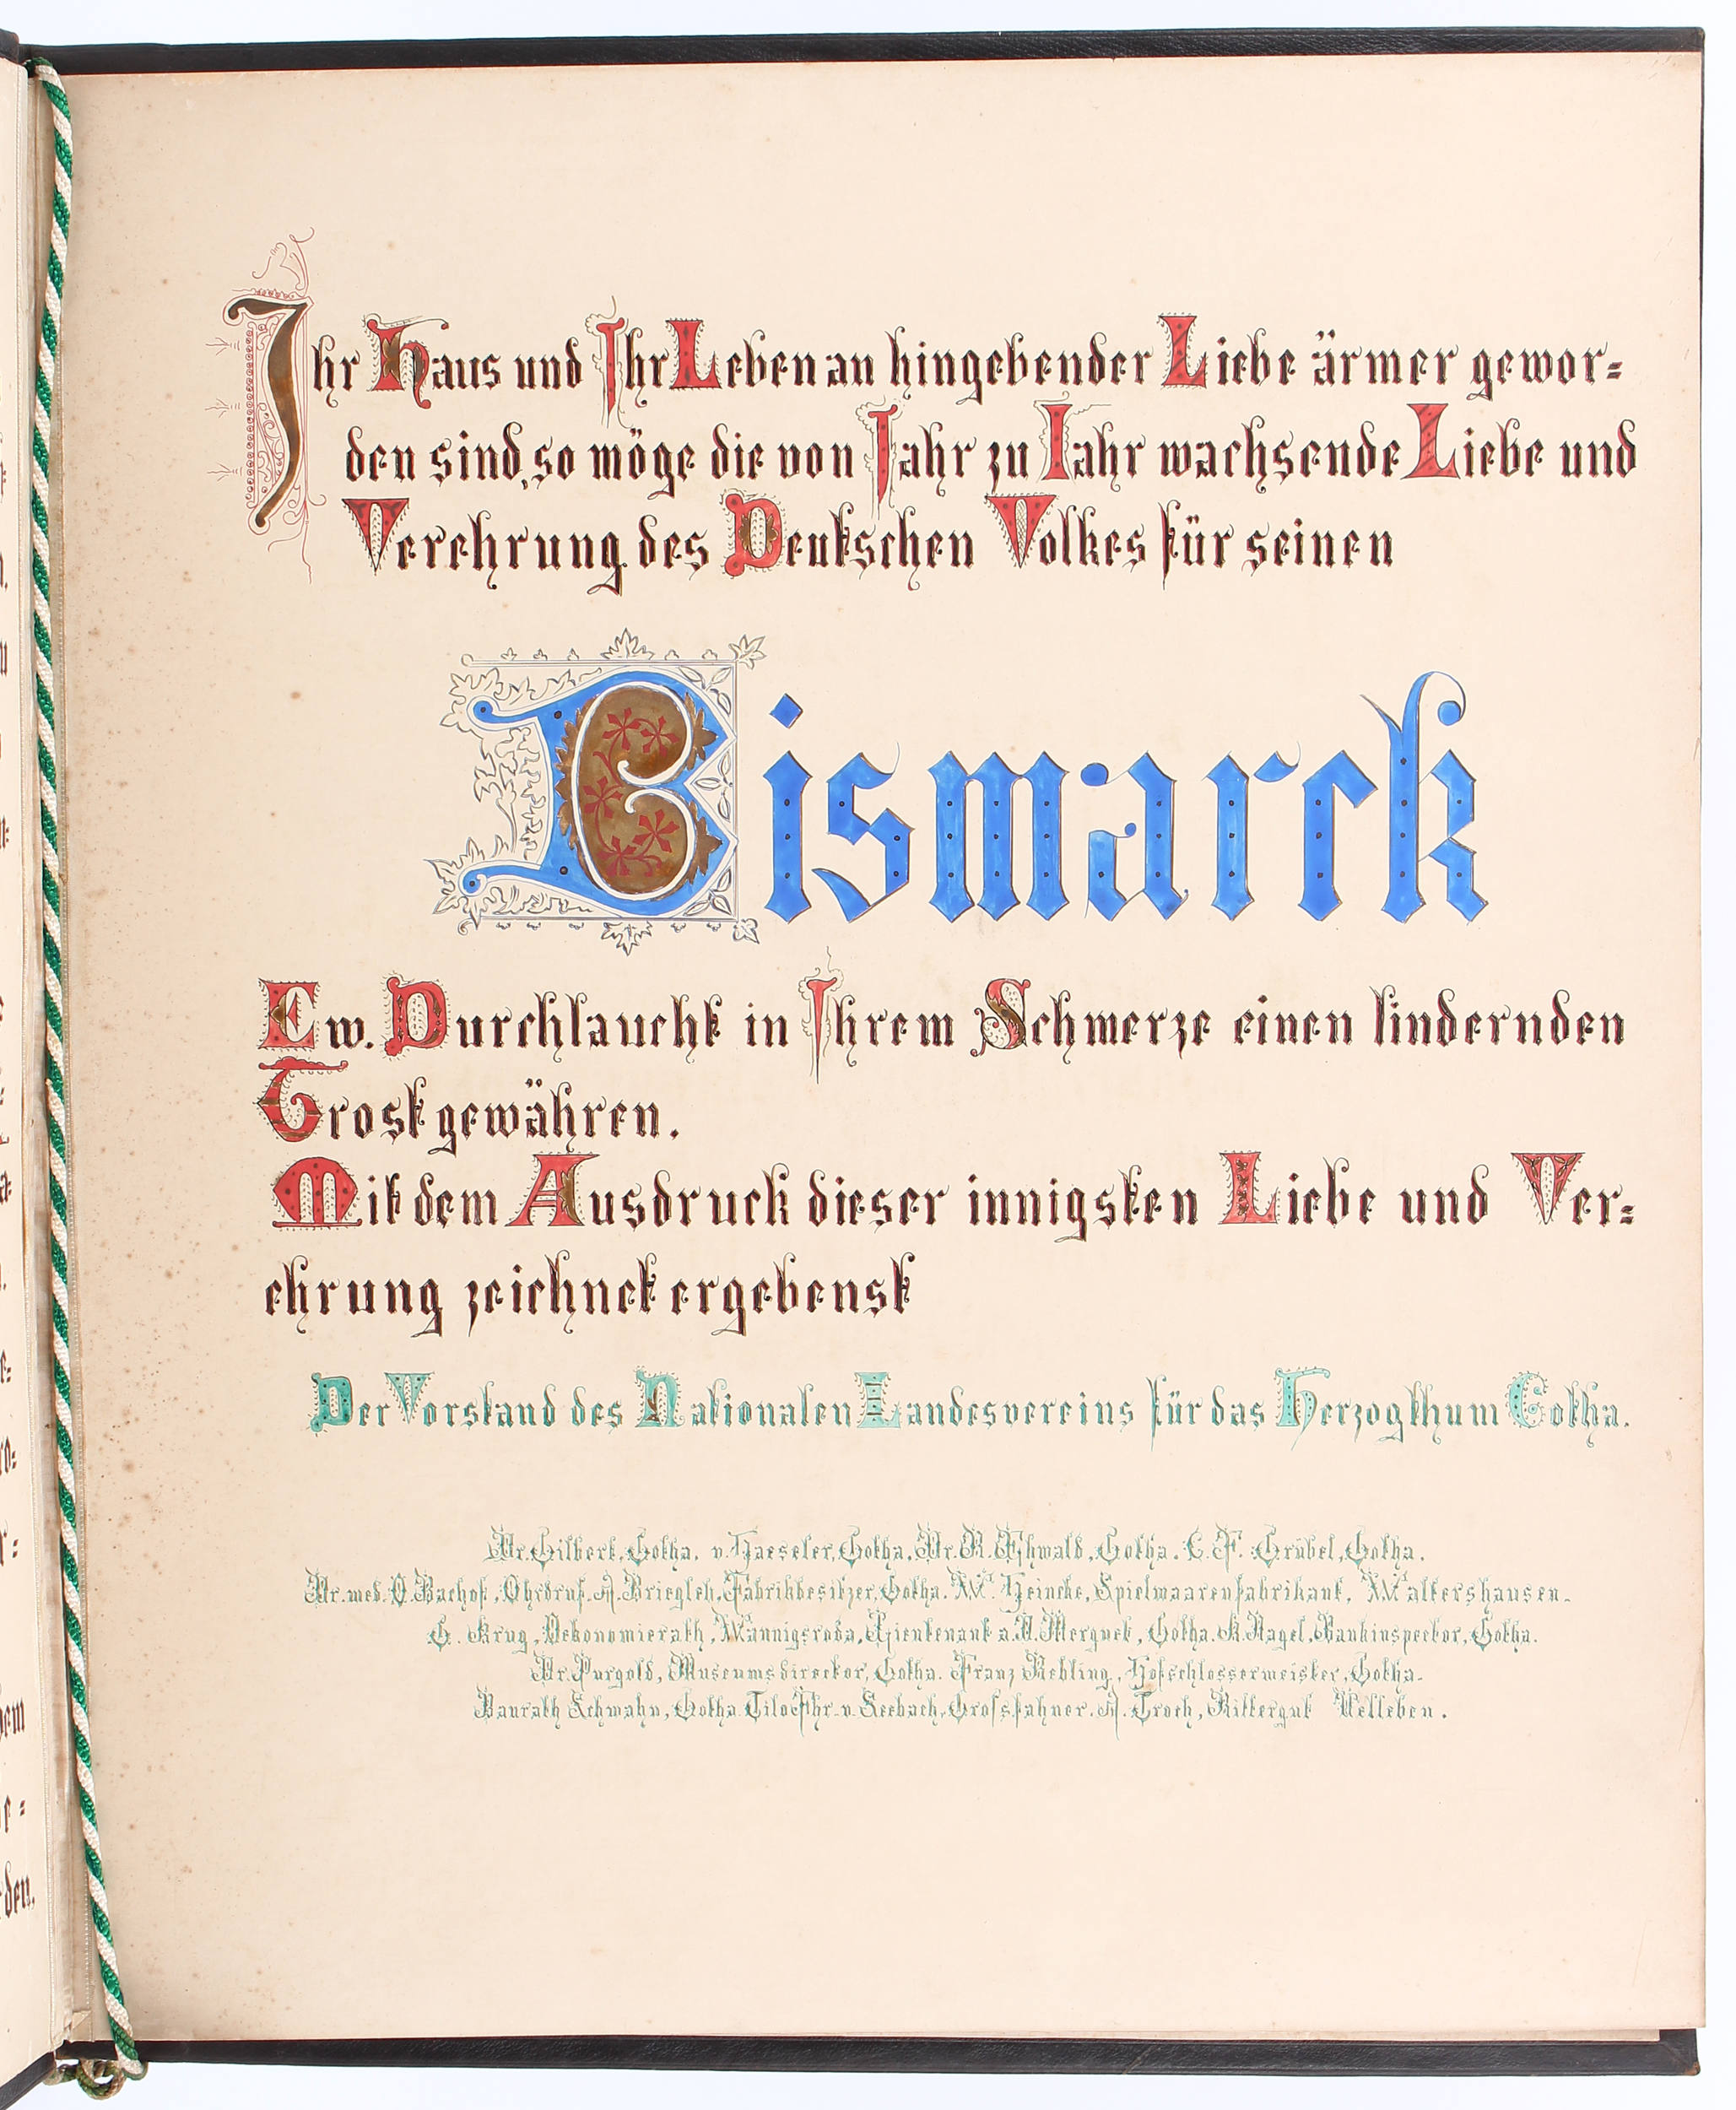 Ihr Haus und Ihr Leben an hingebender Liebe ärmer gewor=
den sind, so möge die von Jahr zu Jahr wachsende Liebe und
Verehrung des Deutschen Volkes für seinen
Bismarck
Ew. Durchlaucht in Ihrem Schmerze einen lindernden
Trost gewähren.
Mit dem Ausdruck dieser innigsten Liebe und Ver=
ehrung zeichnet ergebenst
Der Vorstand des Nationalen Landesvereins für das Herzogthum Gotha.
Dr. Gilbert, Gotha. v. Haeseler, Gotha. Dr. R. Ehwald, Gotha. C. F. Grübel, Gotha.
Dr. med. O. Bachof, Ohrdruf. A. Briegleb, Fabrikbesitzer, Gotha. W. Heincke, Spielwaarenfabrikant, Waltershausen.
G. Krug, Oekonomierath, Wannigsroda, Lieutenant a. D. Merquet, Gotha. K. Nagel, Bankinspector, Gotha.
Dr. Purgold, Museumsdirector, Gotha. Franz Rebling, Hofschlossermeister, Gotha.
Baurath Schwahn, Gotha. Tilo Fhr. v. Seebach, Grossfahner. A. Troch, Rittergut Uelleben.
dem
den.